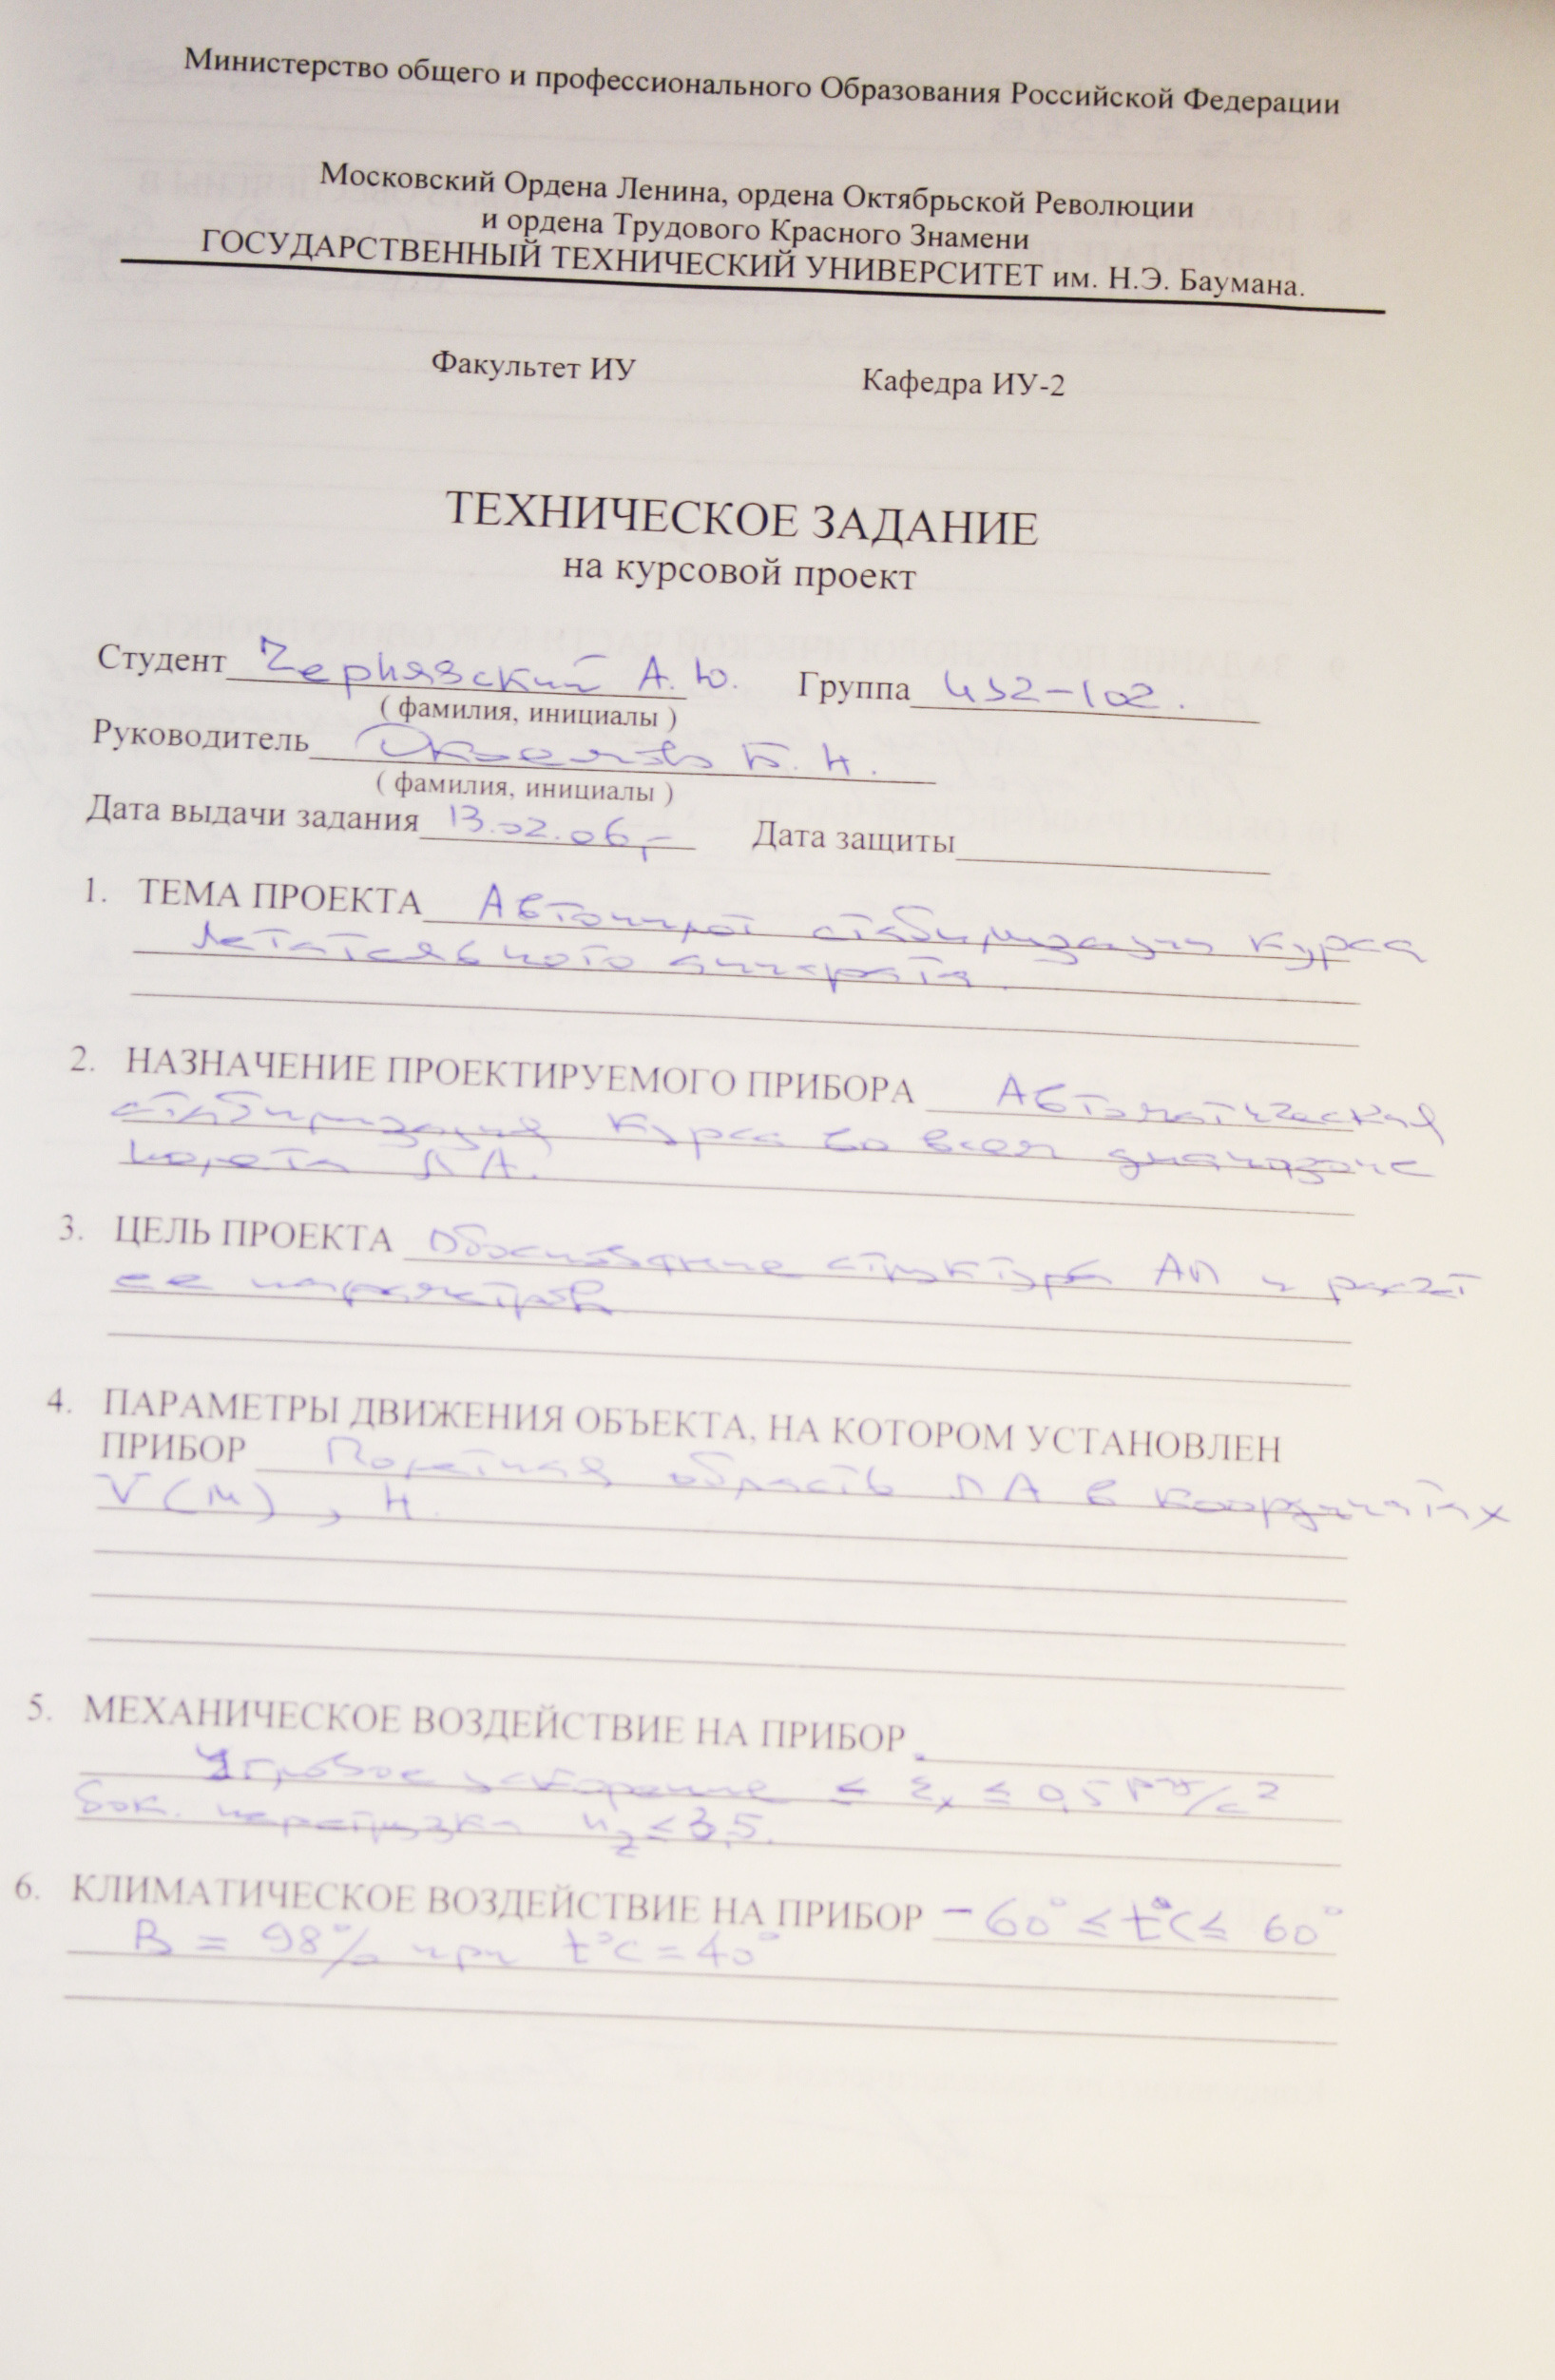 Министерство общего и профессионального Образования Российской Федерации
Московский Ордена Ленина, ордена Октябрьской Революции
и ордена Трудового Красного Знамени
ГОСУДАРСТВЕННЫЙ ТЕХНИЧЕСКИЙ УНИВЕРСИТЕТ им. Н.Э. Баумана.
Факультет ИУ Кафедра ИУ-2
ТЕХНИЧЕСКОЕ ЗАДАНИЕ
на курсовой проект
Студент Чернявский А. Ю. Группа ИУ2-102.
( фамилия, инициалы )
Руководитель Б. Н.
( фамилия, инициалы )
Дата выдачи задания 13.02.06 Дата защиты
1. ТЕМА ПРОЕКТА Автопилот стабилизации курса
летательного аппарата.
2. НАЗНАЧЕНИЕ ПРОЕКТИРУЕМОГО ПРИБОРА Автоматическая
стабилизация курса во всем диапазоне
полета ЛА.
3. ЦЕЛЬ ПРОЕКТА Обоснование структуры АП и расчет
ее параметров
4. ПАРАМЕТРЫ ДВИЖЕНИЯ ОБЪЕКТА, НА КОТОРОМ УСТАНОВЛЕН
ПРИБОР Полетная область ЛА в координатах
V(M), H.
5. МЕХАНИЧЕСКОЕ ВОЗДЕЙСТВИЕ НА ПРИБОР
Угловое ускорение ≤ εx ≤ 0,5 рад/с²
бок. перегрузка nz ≤ 3,5.
6. КЛИМАТИЧЕСКОЕ ВОЗДЕЙСТВИЕ НА ПРИБОР -60° ≤ t°C ≤ 60°
B = 98% при t°C = 40°